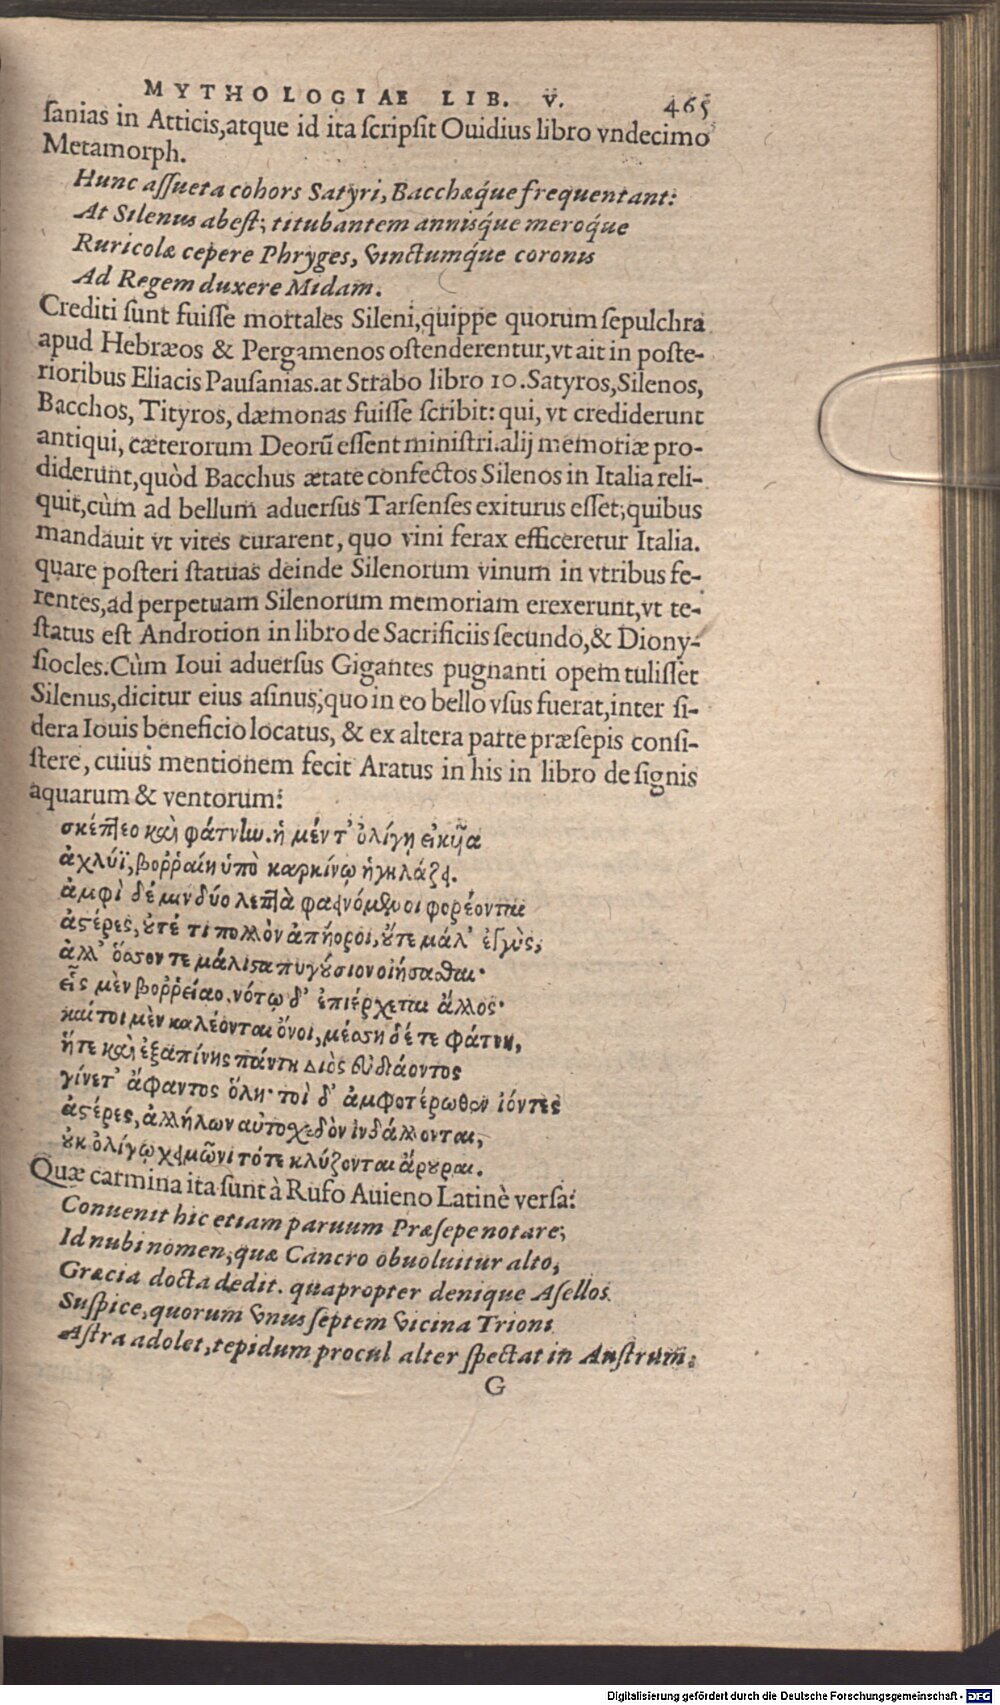 MYTHOLOGIAE LIB. V. 465
ſanias in Atticis,atque id ita ſcripſit Ouidius libro vndecimo
Metamorph.
Hunc aſſueta cohors Satyri, Bacchæq́ue frequentant:
At Silenus abeſt; titubantem annisq́ue meroq́ue
Ruricolæ cepere Phryges, vinctumq́ue coronis
Ad Regem duxere Midam.
Crediti ſunt fuiſſe mortales Sileni,quippe quorum ſepulchra
apud Hebræos & Pergamenos oſtenderentur,vt ait in poſte-
rioribus Eliacis Pauſanias.at Strabo libro 10.Satyros,Silenos,
Bacchos, Tityros, dæmonas fuiſſe ſcribit: qui, vt crediderunt
antiqui, cæterorum Deorū eſſent miniſtri.alij memoriæ pro-
diderunt,quòd Bacchus ætate confectos Silenos in Italia reli-
quit,cùm ad bellum aduerſus Tarſenſes exiturus eſſet;quibus
mandauit vt vites curarent, quo vini ferax efficeretur Italia.
quare poſteri ſtatuas deinde Silenorum vinum in vtribus fe-
rentes,ad perpetuam Silenorum memoriam erexerunt,vt te-
ſtatus eſt Androtion in libro de Sacrificiis ſecundo,& Diony-
ſiocles.Cùm Ioui aduerſus Gigantes pugnanti opem tuliſſet
Silenus,dicitur eius aſinus,quo in eo bello vſus fuerat,inter ſi-
dera Iouis beneficio locatus, & ex altera parte præſepis conſi-
ſtere, cuius mentionem fecit Aratus in his in libro de ſignis
aquarum & ventorum:
σκέπτεο καὶ φάτνην.ἡ μέν τ' ὀλίγῃ εἰκυῖα
ἀχλύϊ, βοῤῥαίη ὑπὸ καρκίνῳ ἡγηλάζει.
ἀμφὶ δέ μιν δύο λεπτὰ φαεινόμενοι φορέονται
ἀστέρες, οὔτέ τι πολλὸν ἀπήοροι, οὔτε μάλ' ἐγγὺς,
ἀλλ' ὅσσον τε μάλιστα πυγούσιον οἰήσασθαι.
εἷς μὲν βοῤῥείαο. νότῳ δ' ἐπιέρχεται ἄλλος.
καί τοι μὲν καλέονται ὄνοι, μέσση δέ τε φάτνη,
ἥτε καὶ ἐξαπίνης πάντη Διὸς εὐδιάοντος
γίνετ' ἄφαντος ὅλη. τοὶ δ' ἀμφοτέρωθεν ἰόντες
ἀστέρες, ἀλλήλων αὐτοσχεδὸν ἰνδάλλονται,
οὐκ ὀλίγῳ χειμῶνι τότε κλύζονται ἄρουραι.
Quæ carmina ita ſunt à Rufo Auieno Latinè verſa:
Conuenit hic etiam paruum Præſepe notare;
Id nubi nomen, quæ Cancro obuoluitur alto,
Græcia docta dedit. quapropter denique Aſellos
Suſpice, quorum vnus ſeptem vicina Trioni
Aſtra adolet, tepidum procul alter ſpectat in Auſtrum:
G
Digitalisierung gefördert durch die Deutsche Forschungsgemeinschaft - DFG